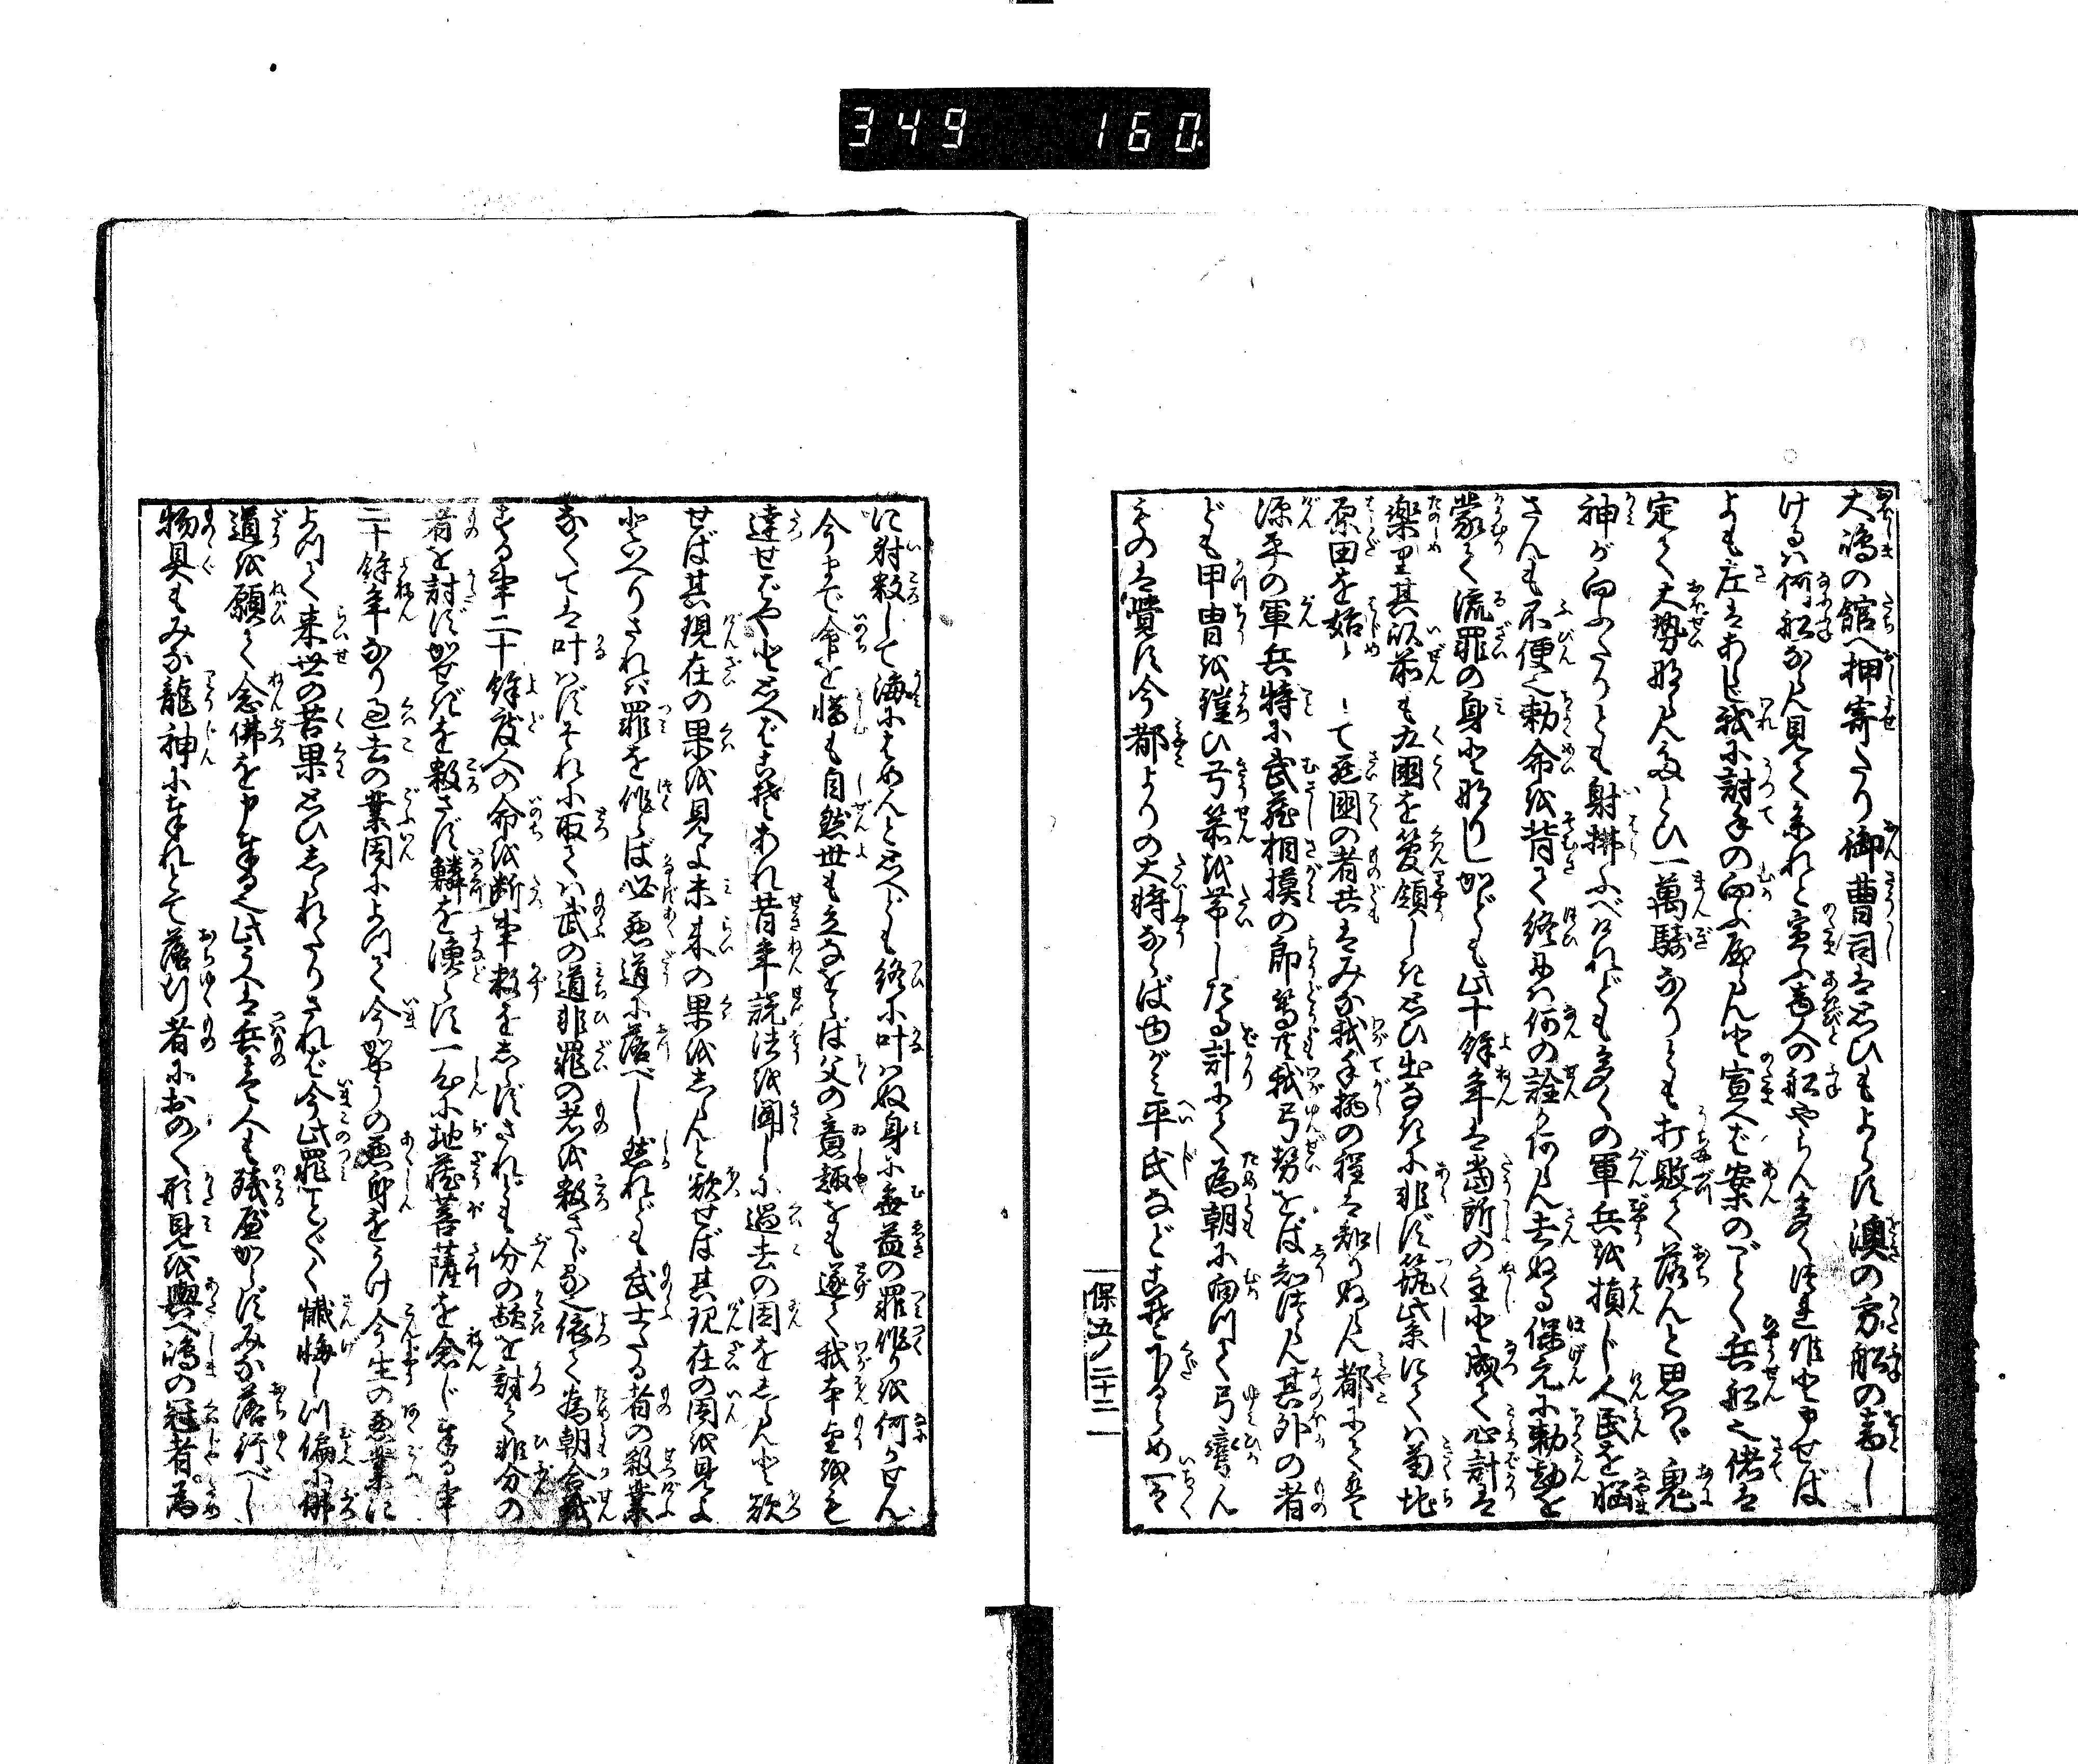 349 160
大嶋の舘へ押寄たり御曹司は思ひもよらず澳の方船の音し
けるは何船ならん見て参れと宣ふ商人の船やらん多く連候と申せば
よも左はあらじ我に討手の向ふ成らんと宣へば案のごとく兵船也偖は
定て大勢成らんたとひ一萬騎なりとも打敗て落んと思はゞ鬼
神が向ふたりとも射拂ふべけれども多くの軍兵を損じ人民を悩
さんも不便也勅命を背て終には何の詮か有らん去ぬる保元に勅勘を
蒙て流罪の身と成りしかども此十餘年は當所の主と成て心計は
楽里其以前も九國を管領しき思ひ出なきに非ず筑紫にては菊地
原田を始として西國の者共はみな我手柄の程は知りぬらん都にては
源平の軍兵特に武蔵相摸の郎等共我弓勢をば知つらん其外の者
ども甲冑を鎧ひ弓箭を帯したる計にて為朝に向つて弓彎ん
ものは覚ず今都よりの大将ならば曲がみ平氏などこそ下るらめ一々
保五ノ二十二
に射殺して海にはめんと思へども終に叶はぬ身に無益の罪作りを何かせん
今まで命を惜も自然世も立なをらば父の意趣をも遂て我本望をも
達せばやと思へばこそあれ昔年説法を聞しに過去の因をしらんと欲
せば其現在の果を見よ未来の果をしらんと欲せば其現在の因を見よ
といへりされば罪を作らば必悪道に落べし然れども武士たる者の殺業
なくては叶はずそれに取ては武の道非罪の者を殺さず是に依て為朝合戦
する事二十餘度人の命を断事数をしらずされども分の敵を討て非分の
者を討ず鹿せぎを殺さず鱗を漁らず一心に地蔵菩薩を念じ奉る事
二十餘年なり過去の業因によつて今かやうの悪身をうけ今生の悪業に
よつて来世の苦果思ひしられたりされば今此罪ことごとく懺悔しつ偏に佛
道を願て念佛を申奉る也此うへは兵壱人も残るべからずみな落行べし
物具もみな龍神に奉れとて落行者におの〳〵形見を與へ嶋の冠者為